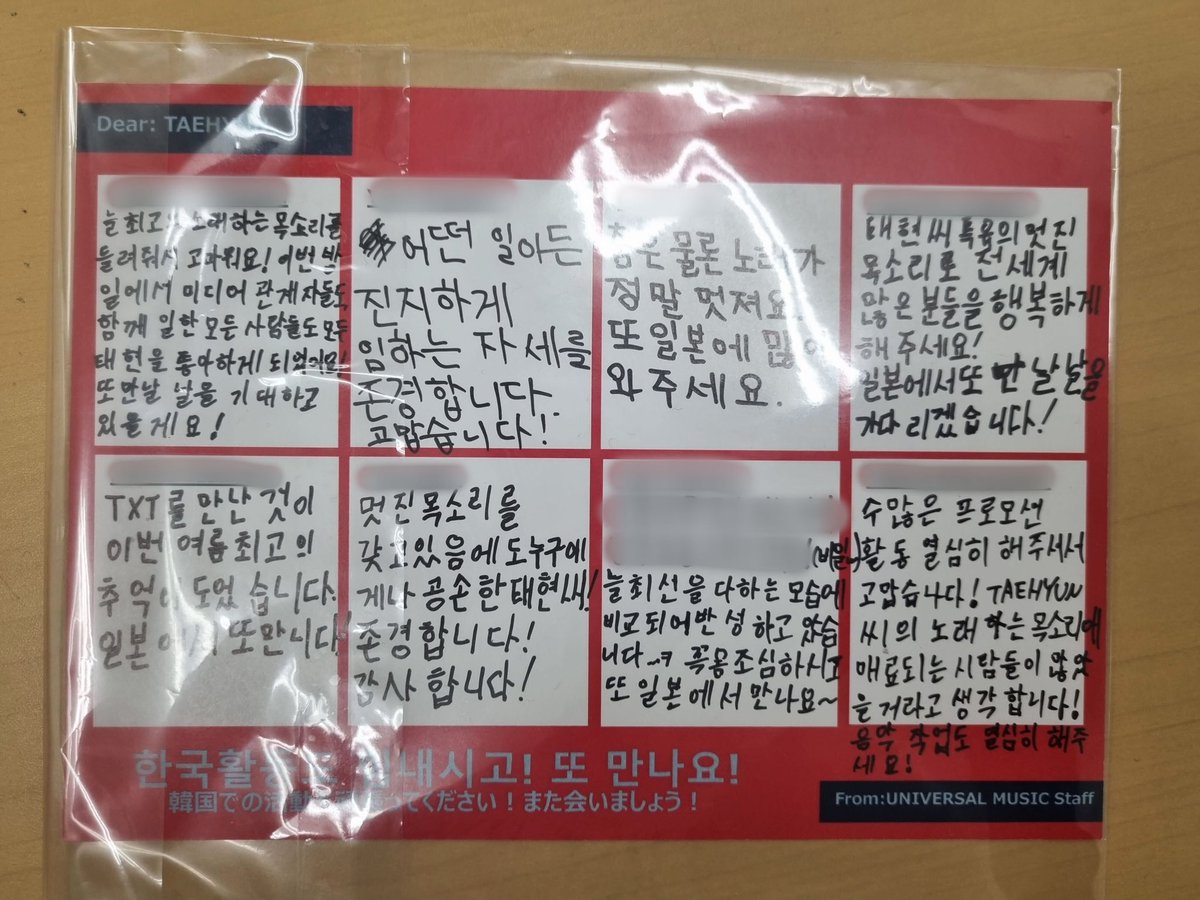 Dear: TAEHY
늘 최고의 노래하는 목소리를
들려줘서 고마워요! 이번 발
일에서 미디어 관계자들도
함께 일한 모든 사람들도 모두
태현을 좋아하게 되었어요!
또 만날 날을 기대하고
있을게요!
어떠떤 일아든
진지하게
임하는 자세를
존경합니다.
고맙습니다!
춤은 물론 노래가
정말 멋져요
또 일본에 많이
와주세요.
태현씨 특유의 멋진
목소리로 전세계
많은 분들을 행복하게
해주세요!
일본에서 또 만날 날을
기다리겠습니다!
TXT를 만난 것이
이번 여름 최고의
추억이 되었습니다.
일본에서 또만니다
멋진 목소리를
갖고 있음에도 누구에
게나 공손한 태현씨!
존경합니다!
감사합니다!
늘 최선을 다하는 모습에
비교되어 반성하고 있습
니다 목 몸조심하시고
또 일본에서 만나요~
수많은 프로모션
활동 열심히 해주셔서
고맙습니다! TAEHYUN
씨의 노래하는 목소리에
매료되는 시람들이 많았
을 거라고 생각합니다!
음악 작업도 열심히 해주
세요!
한국활동도 힘내시고! 또 만나요!
韓国での活動も頑張ってください！また会いましょう！
From:UNIVERSAL MUSIC Staff